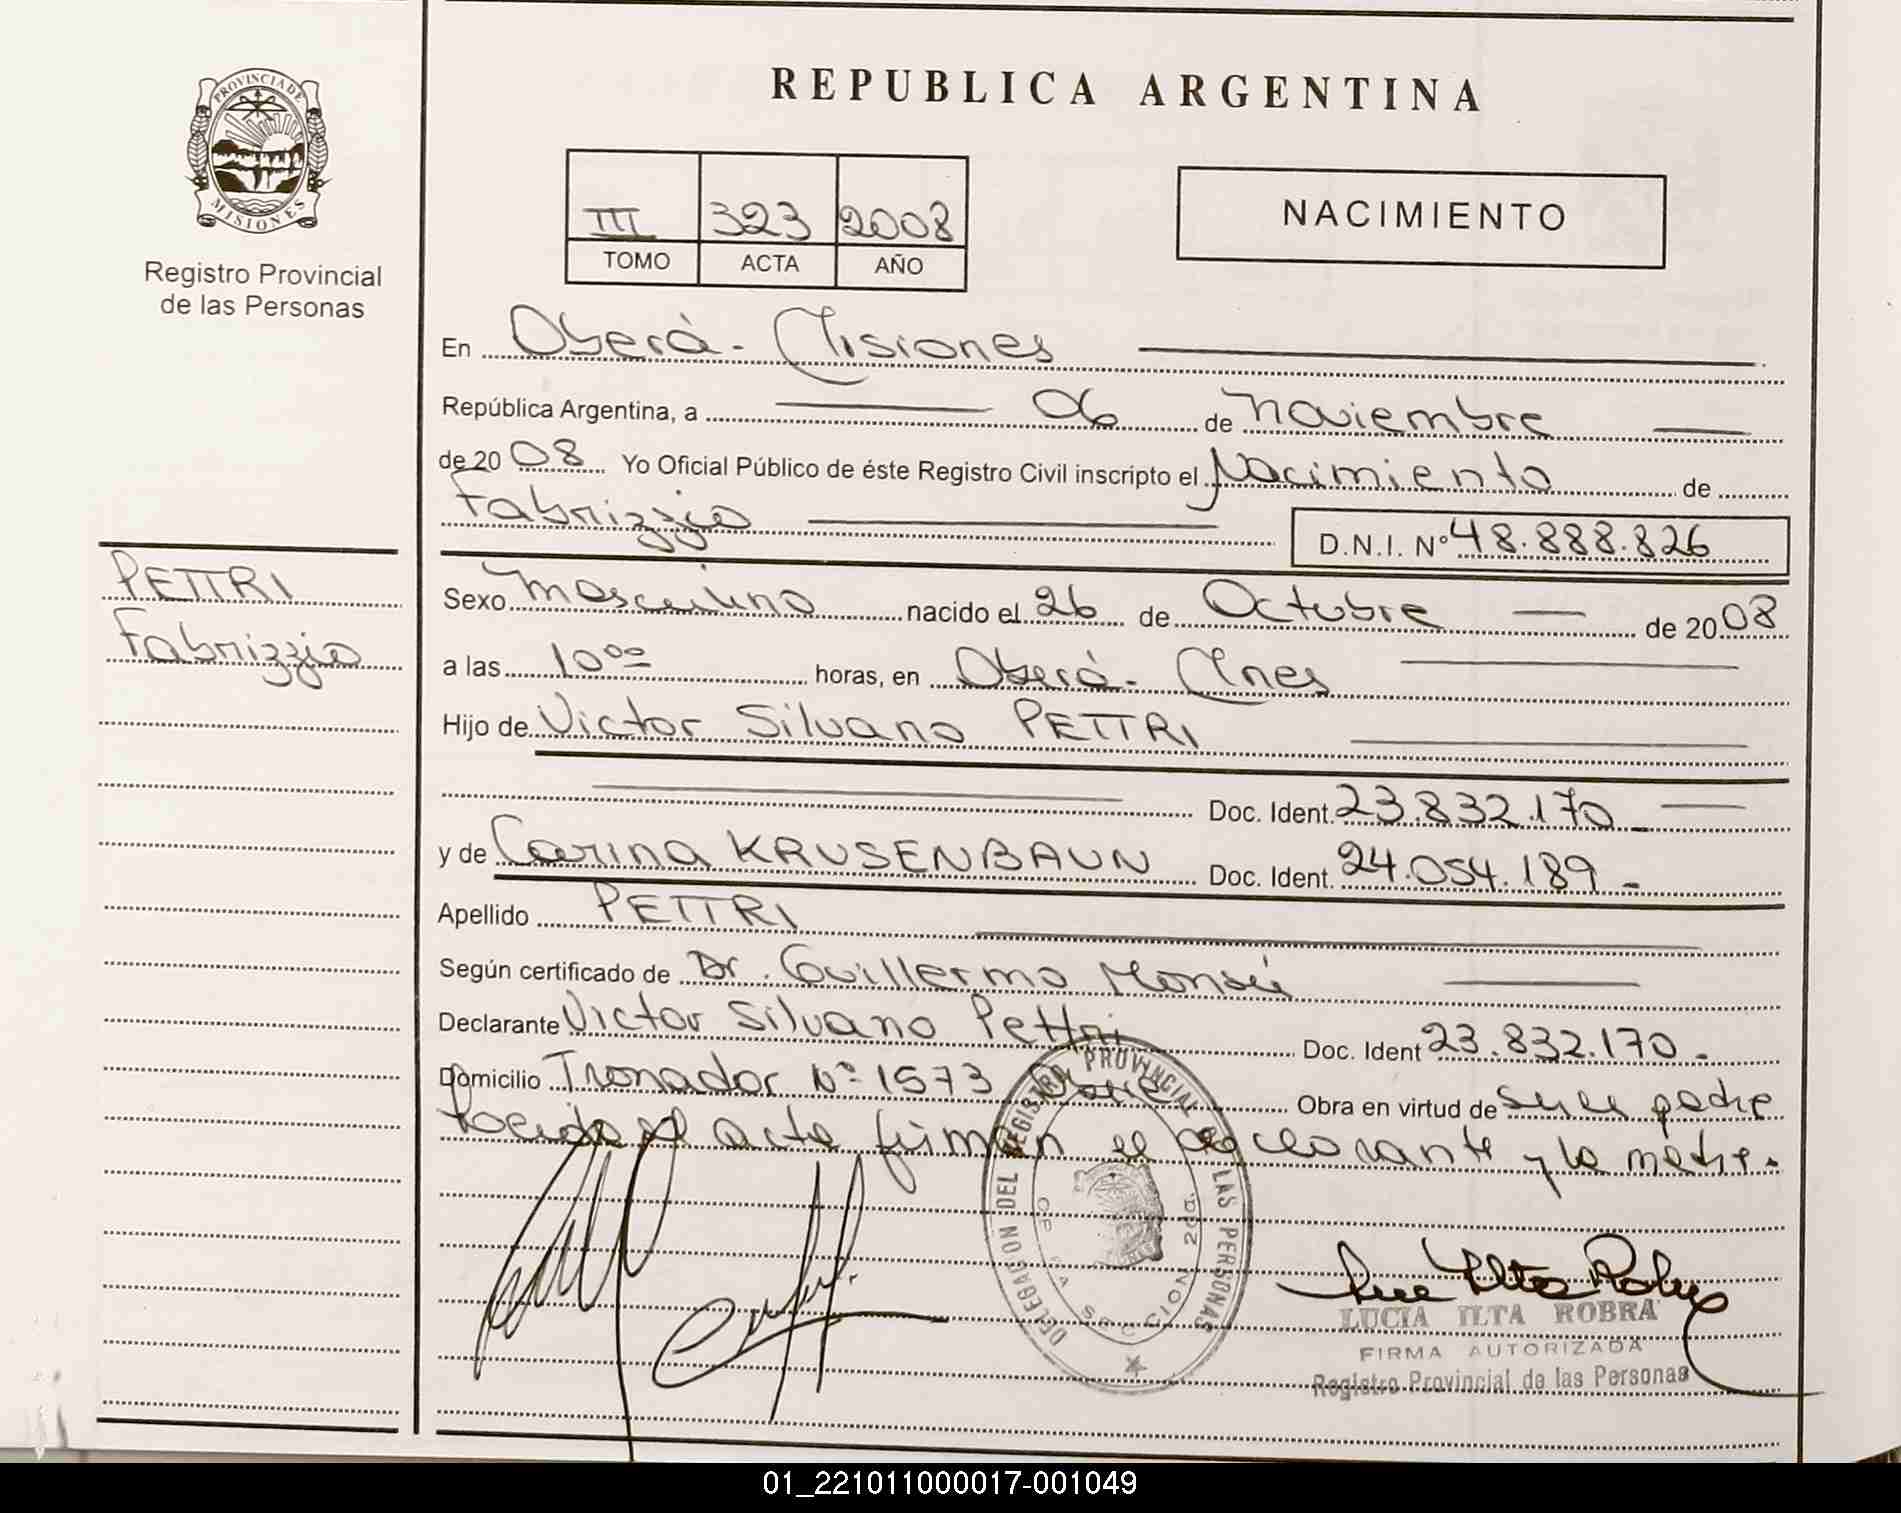 PROVINCIA DE
MISIONES
Registro Provincial
de las Personas
REPUBLICA ARGENTINA
III 323 2008
TOMO ACTA AÑO
NACIMIENTO
En Oberá - Misiones
República Argentina, a 06 de noviembre
de 20 08 Yo Oficial Público de éste Registro Civil inscripto el Nacimiento de
Fabrizzio D.N.I. Nº 48.888.826
PETTRI
Fabrizzio
Sexo masculino nacido el 26 de Octubre de 20 08
a las 10ºº horas, en Oberá - Mnes
Hijo de Victor Silvano PETTRI
Doc. Ident. 23.832.170 -
y de Carina KRUSENBAUN Doc. Ident. 24.054.189 -
Apellido PETTRI
Según certificado de Dr. Guillermo
Declarante Victor Silvano Pettri Doc. Ident 23.832.170 -
Domicilio Tronador Nº 1573 Obra en virtud de ser el padre
el acta firman el declarante y la madre.
DELEGACION DEL REGISTRO PROVINCIAL LAS PERSONAS
SECCION 2da.
LUCIA ILTA ROBRA
FIRMA AUTORIZADA
Registro Provincial de las Personas
01_221011000017-001049